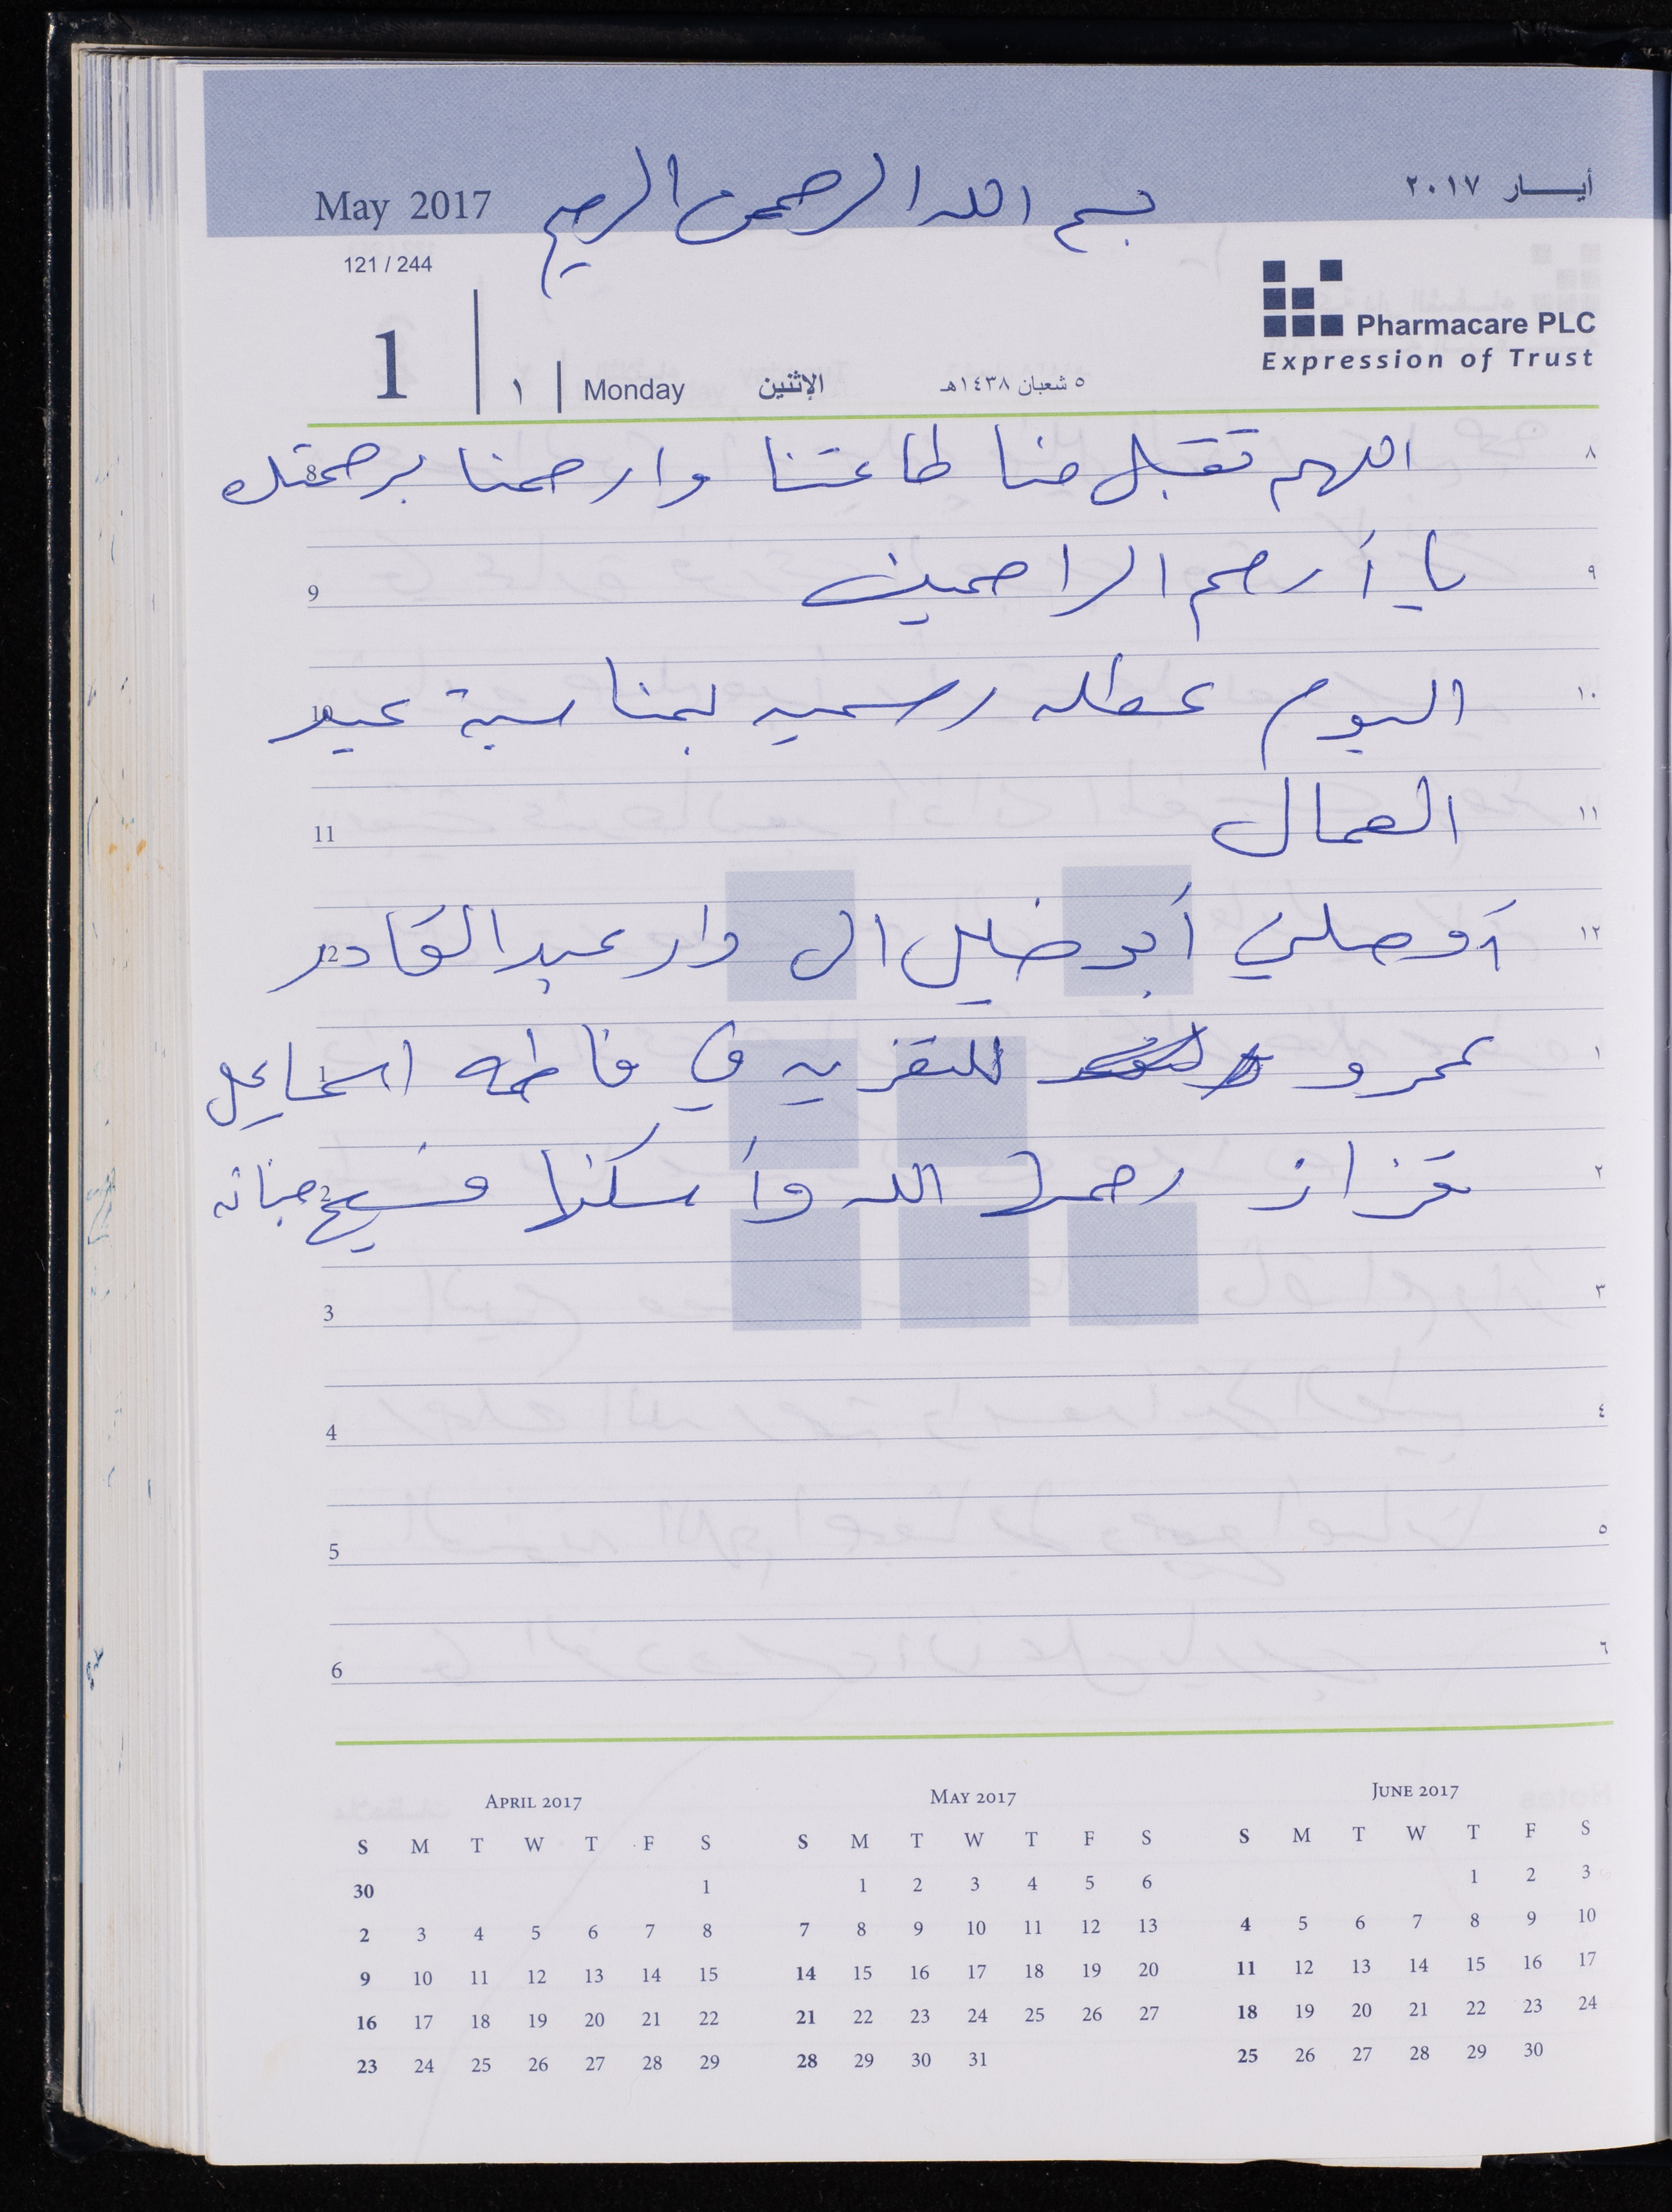 بسم الله الرحمن الرحيم
May 2017
أيـــــار ٢٠١٧
121 / 244
Pharmacare PLC
Expression of Trust
1 | ١ | Monday الإثنين ٥ شعبان ١٤٣٨هـ
8 اللهم تقبل منا طاعتنا وارحمنا برحمتك ٨
9 يا أرحم الراحمين ٩
10 اليوم عطله رسميه بمناسبة عيد ١٠
11 العمال ١١
12 أوصلني أبو خليل ال دار عبد القادر ١٢
1 عمرو للتعزيه في فاطمه اسماعيل ١
2 قزاز رحمها الله وأسكنها فسيح جناته ٢
3 ٣
4 ٤
5 ٥
6 ٦
April 2017
S M T W T F S
30 1
2 3 4 5 6 7 8
9 10 11 12 13 14 15
16 17 18 19 20 21 22
23 24 25 26 27 28 29
May 2017
S M T W T F S
1 2 3 4 5 6
7 8 9 10 11 12 13
14 15 16 17 18 19 20
21 22 23 24 25 26 27
28 29 30 31
June 2017
S M T W T F S
1 2 3
4 5 6 7 8 9 10
11 12 13 14 15 16 17
18 19 20 21 22 23 24
25 26 27 28 29 30